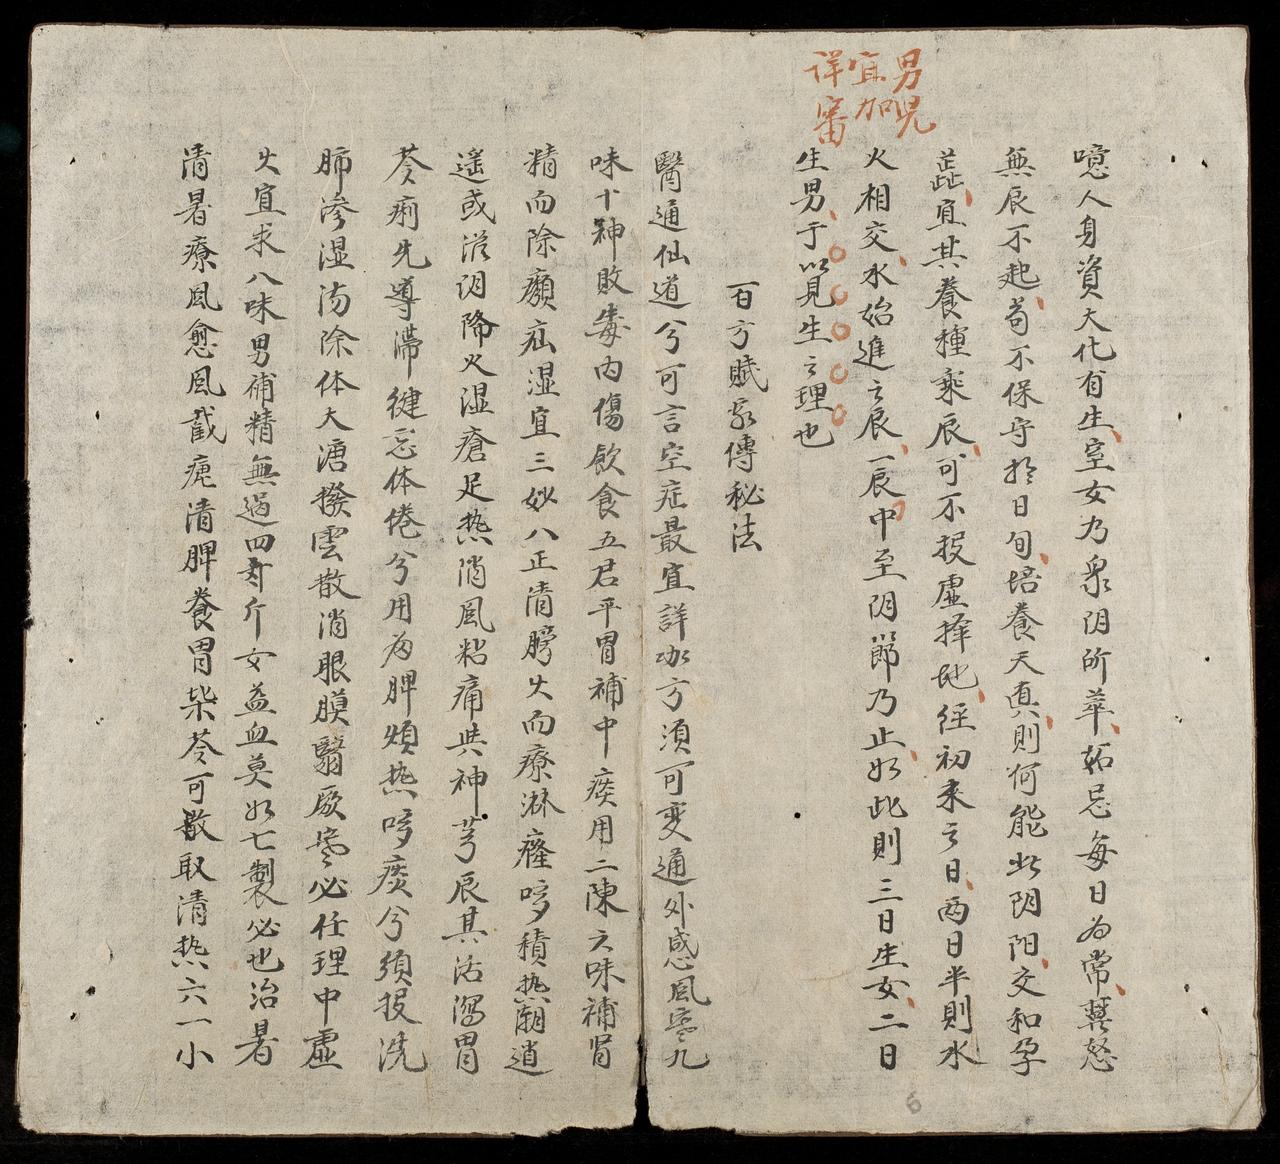 男兒
宜加
詳審
噫人身資大化有生室女乃衆阴所萃妬忌每日为常喜怒
無辰不起苟不保守於日旬培養天真則何能此阴阳交和孕
哉宜其養種乘辰可不授虛擇地經初来之日两日半則水
火相交水始進之辰一辰中至阴節乃止如此則三日生女二日
生男于以見生之理也
百方賦家傳秘法
醫通仙道兮可言空症最宜詳加方須可变通外感風寒九
味十神敗毒内傷飲食五君平胃補中痰用二陳六味補腎
精而除癩疝湿宜三妙八正清膀火而療淋癃哮積热潮逍
遥或滋阴降火湿瘡足热消風粘痛共神芎辰其沽瀉胃
苓痢先導滯健忘体倦兮用为脾煩热哮痰兮須投洗
肺渗湿汤除体大溏撥雲散消眼膜翳厥寒必任理中虛
火宜求八味男補精無過四斤女益血莫如七製必也治暑
清暑療風愈風截瘧清脾養胃柴苓可散取清热六一小
6